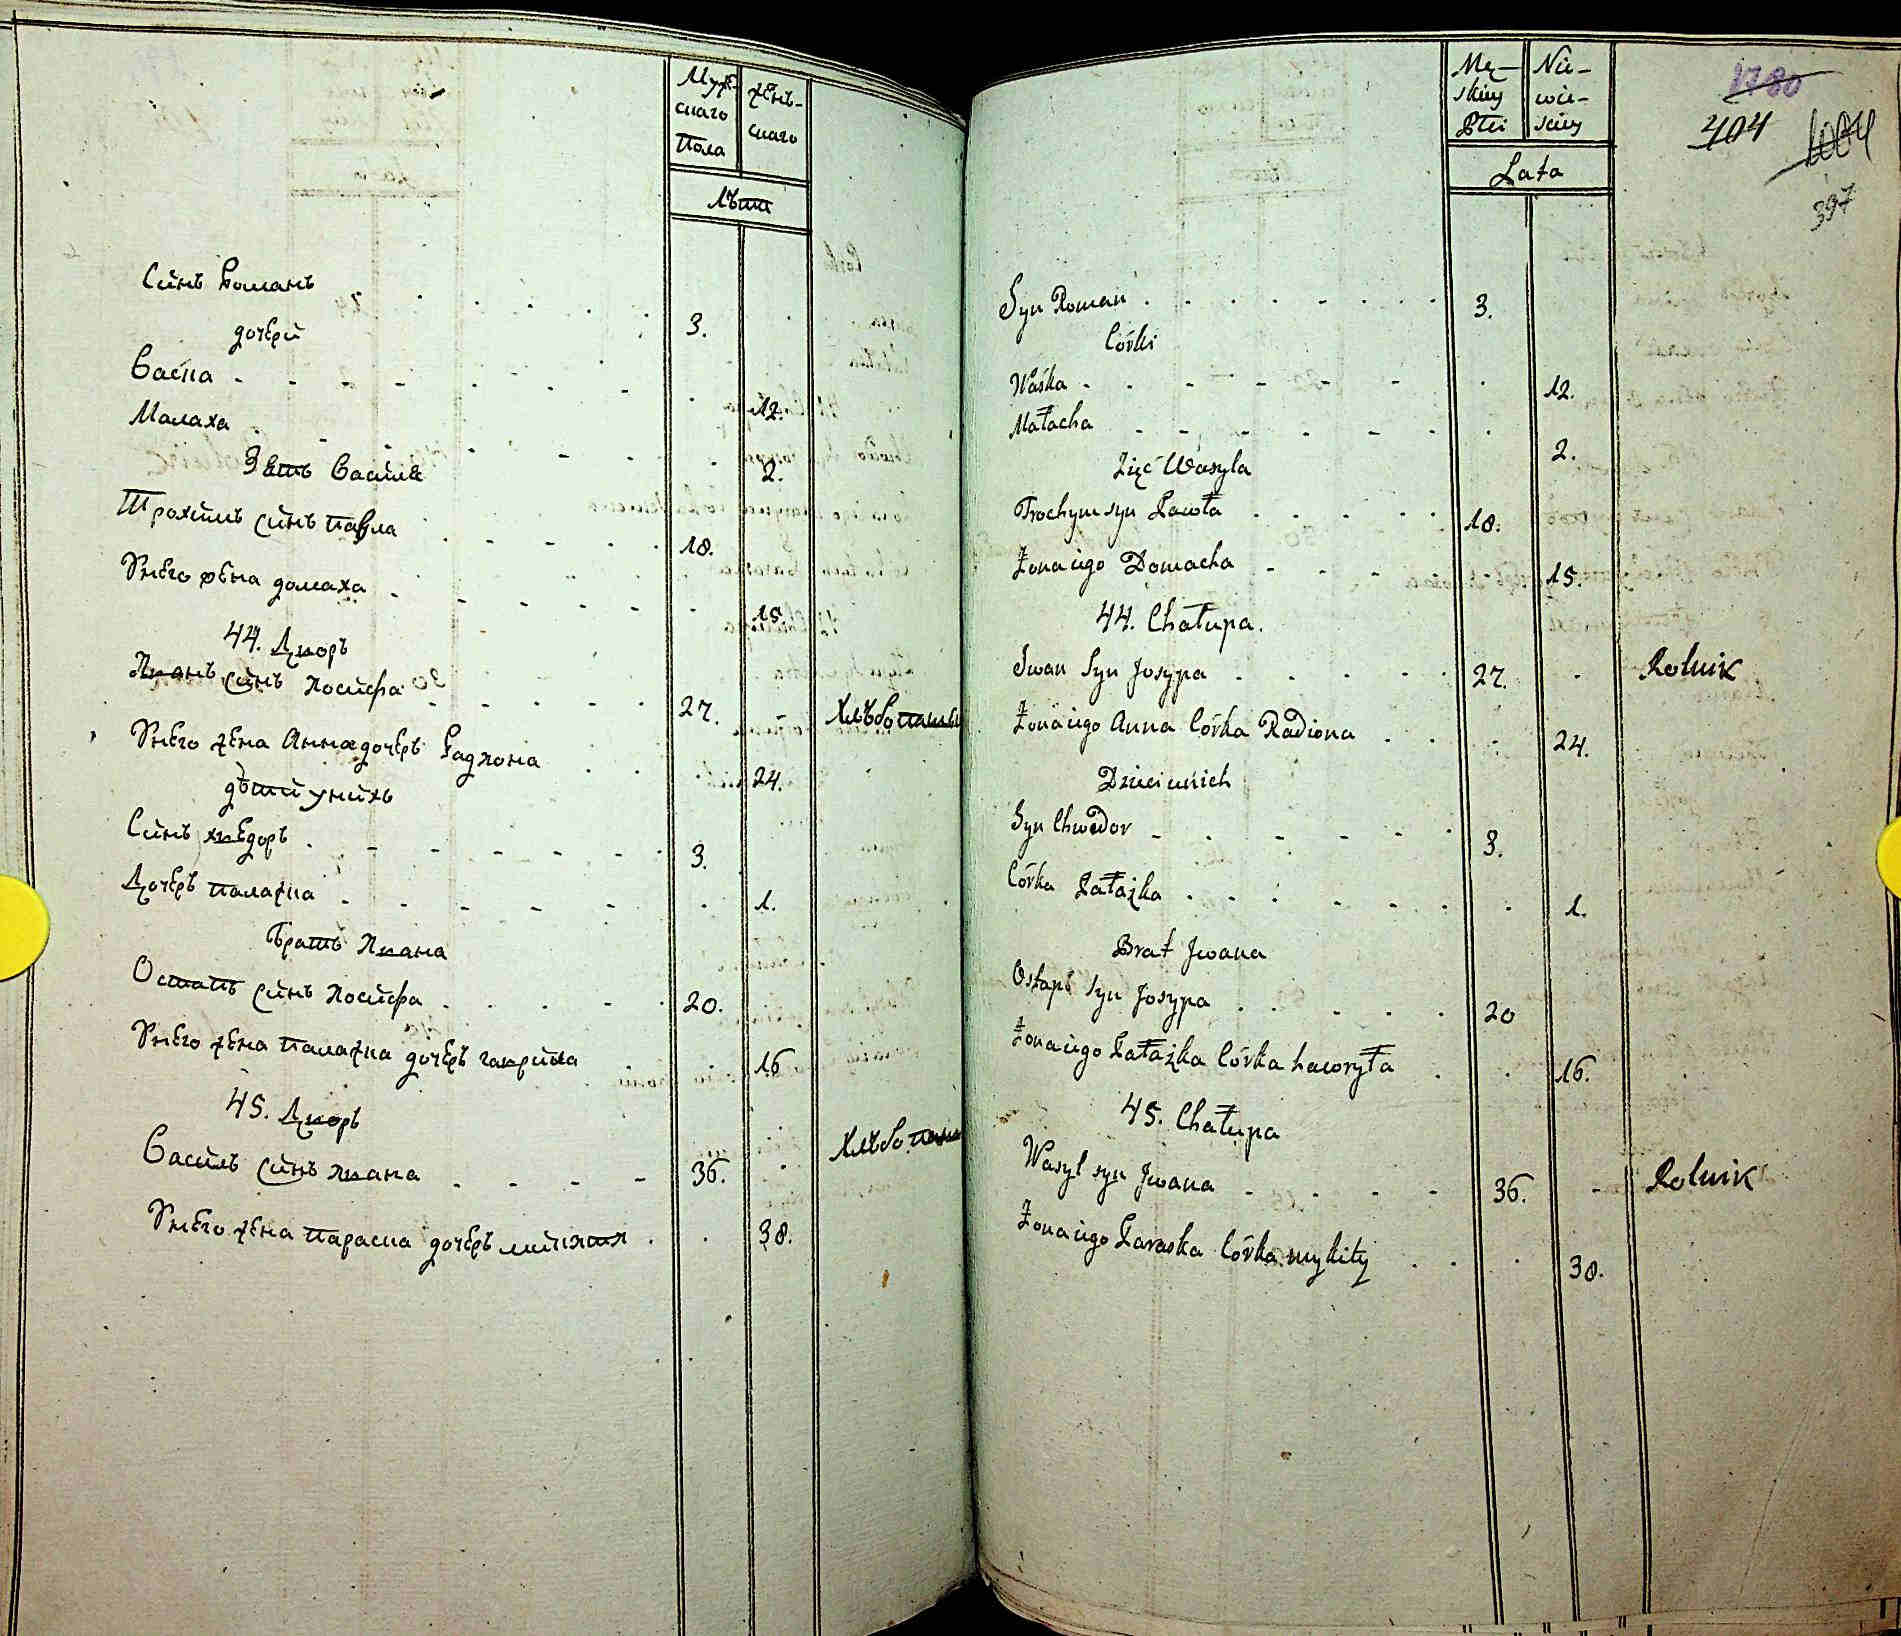 Мужескаго Пола
женьскаго
лѣтъ
Синъ Романъ . . . . . . 3.
дочери
Васка - - - - - - - . 12.
Малаха - - - - - - . 2.
Зять Василя
Трохимъ синъ павла - - - - - 18.
Унего жена домаха - - - - - - 15.
44. Дворъ
Иванъ синъ Иосифа - - - - - 27. - Хлѣбопашец
Унего жена Анна дочерь Радиона . . . 24.
дѣти унихъ
Синъ хведоръ . - - - - - - 3.
Дочерь палажка . - - - - - . 1.
Братъ Ивана
Остапъ синъ Иосифа . . . . . 20.
Унего жена палажка дочерь гаврила . . 16
45. Дворъ
Василь синъ Ивана - - - - 36. . Хлѣбопаш
Унего жена параска дочерь микити . . 38.
Męskiey Płci
Niewieściey
Lata
1780
404
1004
397
Syn Roman . . . . . . . 3.
Córki
Waśka - . . - - - - . 12.
Małacha - - - - - - . 2.
Zięć Wasyla
Trochym syn Pawła . . . . . 18.
Żona iego Domacha - - - . 15.
44. Chałupa.
Iwan Syn Josypa . . . . . 27. . Rolnik
Żona iego Anna Córka Radiona . . . 24.
Dzieci u nich
Syn Chwedor - . . - - - . 3.
Córka Pałażka . . . - - - . . 1.
Brat Jwana
Ostap Syn Josypa . . . . . 20
Żona iego Pałażka Córka hawryła . . 16.
45. Chałupa
Wasyl syn Jwana - . . . - 36. - Rolnik
Żona iego Paraska Córka mykity . . . 38.